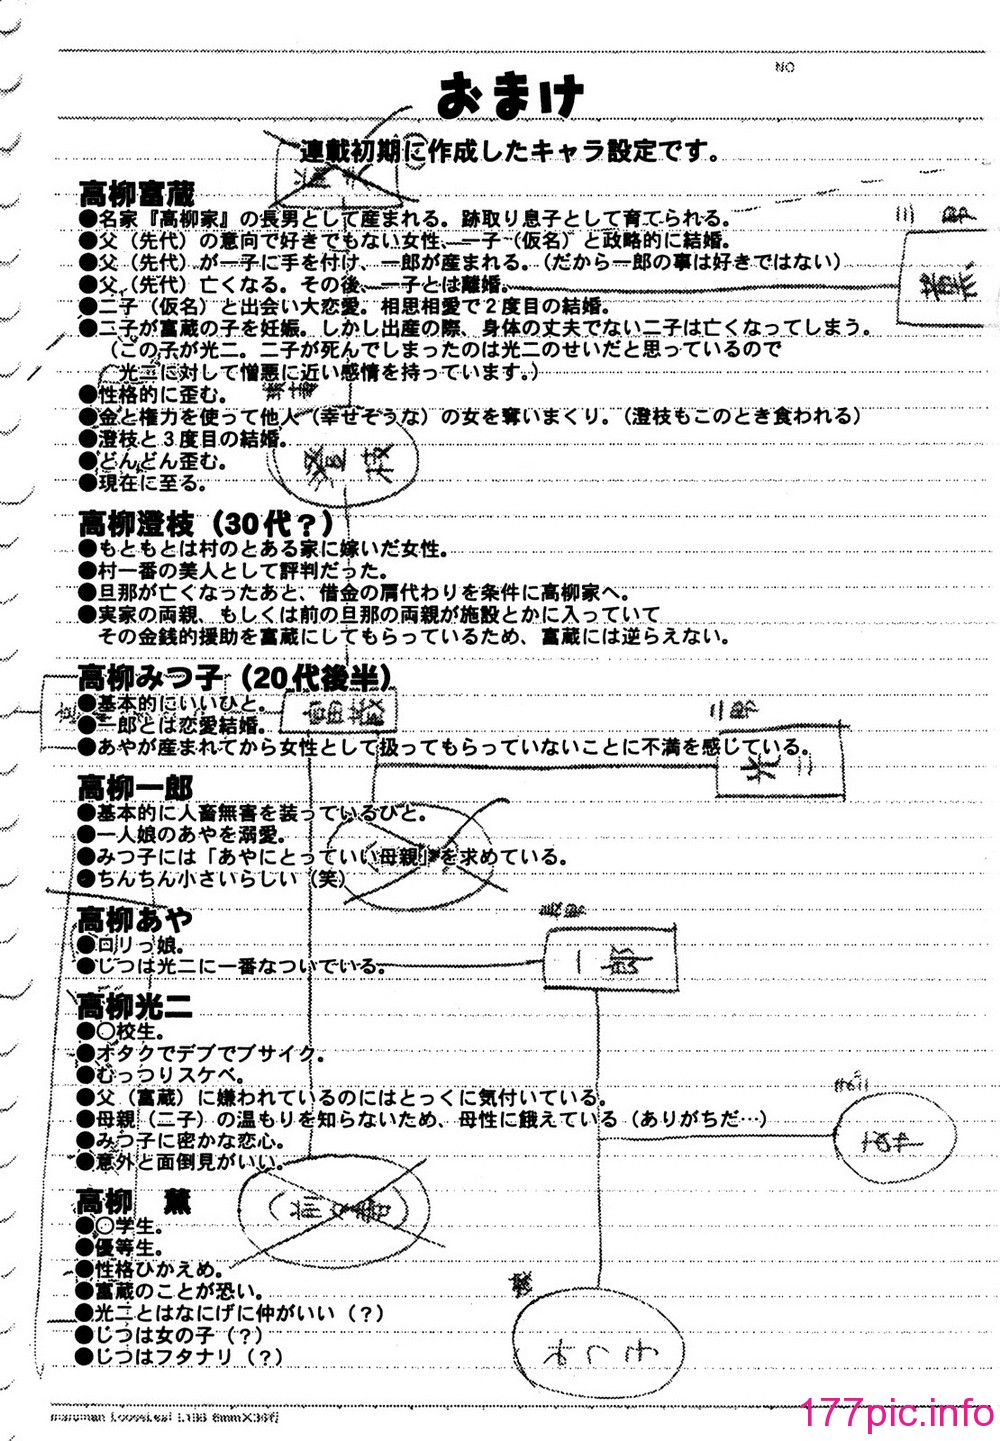 NO
おまけ
連載初期に作成したキャラ設定です。
高柳富蔵
●名家『高柳家』の長男として産まれる。跡取り息子として育てられる。
●父（先代）の意向で好きでもない女性、一子（仮名）と政略的に結婚。
●父（先代）が一子に手を付け、一郎が産まれる。（だから一郎の事は好きではない）
●父（先代）亡くなる。その後、一子とは離婚。
●二子（仮名）と出会い大恋愛。相思相愛で２度目の結婚。
●二子が富蔵の子を妊娠。しかし出産の際、身体の丈夫でない二子は亡くなってしまう。
（この子が光二。二子が死んでしまったのは光二のせいだと思っているので
光二に対して憎悪に近い感情を持っています。）
●性格的に歪む。
●金と権力を使って他人（幸せそうな）の女を奪いまくり。（澄枝もこのとき食われる）
●澄枝と３度目の結婚。
●どんどん歪む。
●現在に至る。
澄枝
高柳澄枝（30代？）
●もともとは村のとある家に嫁いだ女性。
●村一番の美人として評判だった。
●旦那が亡くなったあと、借金の肩代わりを条件に高柳家へ。
●実家の両親、もしくは前の旦那の両親が施設とかに入っていて
その金銭的援助を富蔵にしてもらっているため、富蔵には逆らえない。
高柳みつ子（20代後半）
●基本的にいいひと。
富蔵
●一郎とは恋愛結婚。
二郎
●あやが産まれてから女性として扱ってもらっていないことに不満を感じている。
光二
高柳一郎
●基本的に人畜無害を装っているひと。
●一人娘のあやを溺愛。
●みつ子には「あやにとっていい母親」を求めている。
●ちんちん小さいらしい（笑）
高柳あや
長男
●ロリっ娘。
●じつは光二に一番なついている。
一郎
高柳光二
●○校生。
●オタクでデブでブサイク。
●むっつりスケベ。
●父（富蔵）に嫌われているのにはとっくに気付いている。
●母親（二子）の温もりを知らないため、母性に餓えている（ありがちだ…）
●みつ子に密かな恋心。
●意外と面倒見がいい。
高柳　薫
●○学生。
●優等生。
●性格ひかえめ。
●富蔵のことが恐い。
●光二とはなにげに仲がいい（？）
●じつは女の子（？）
●じつはフタナリ（？）
177pic.info